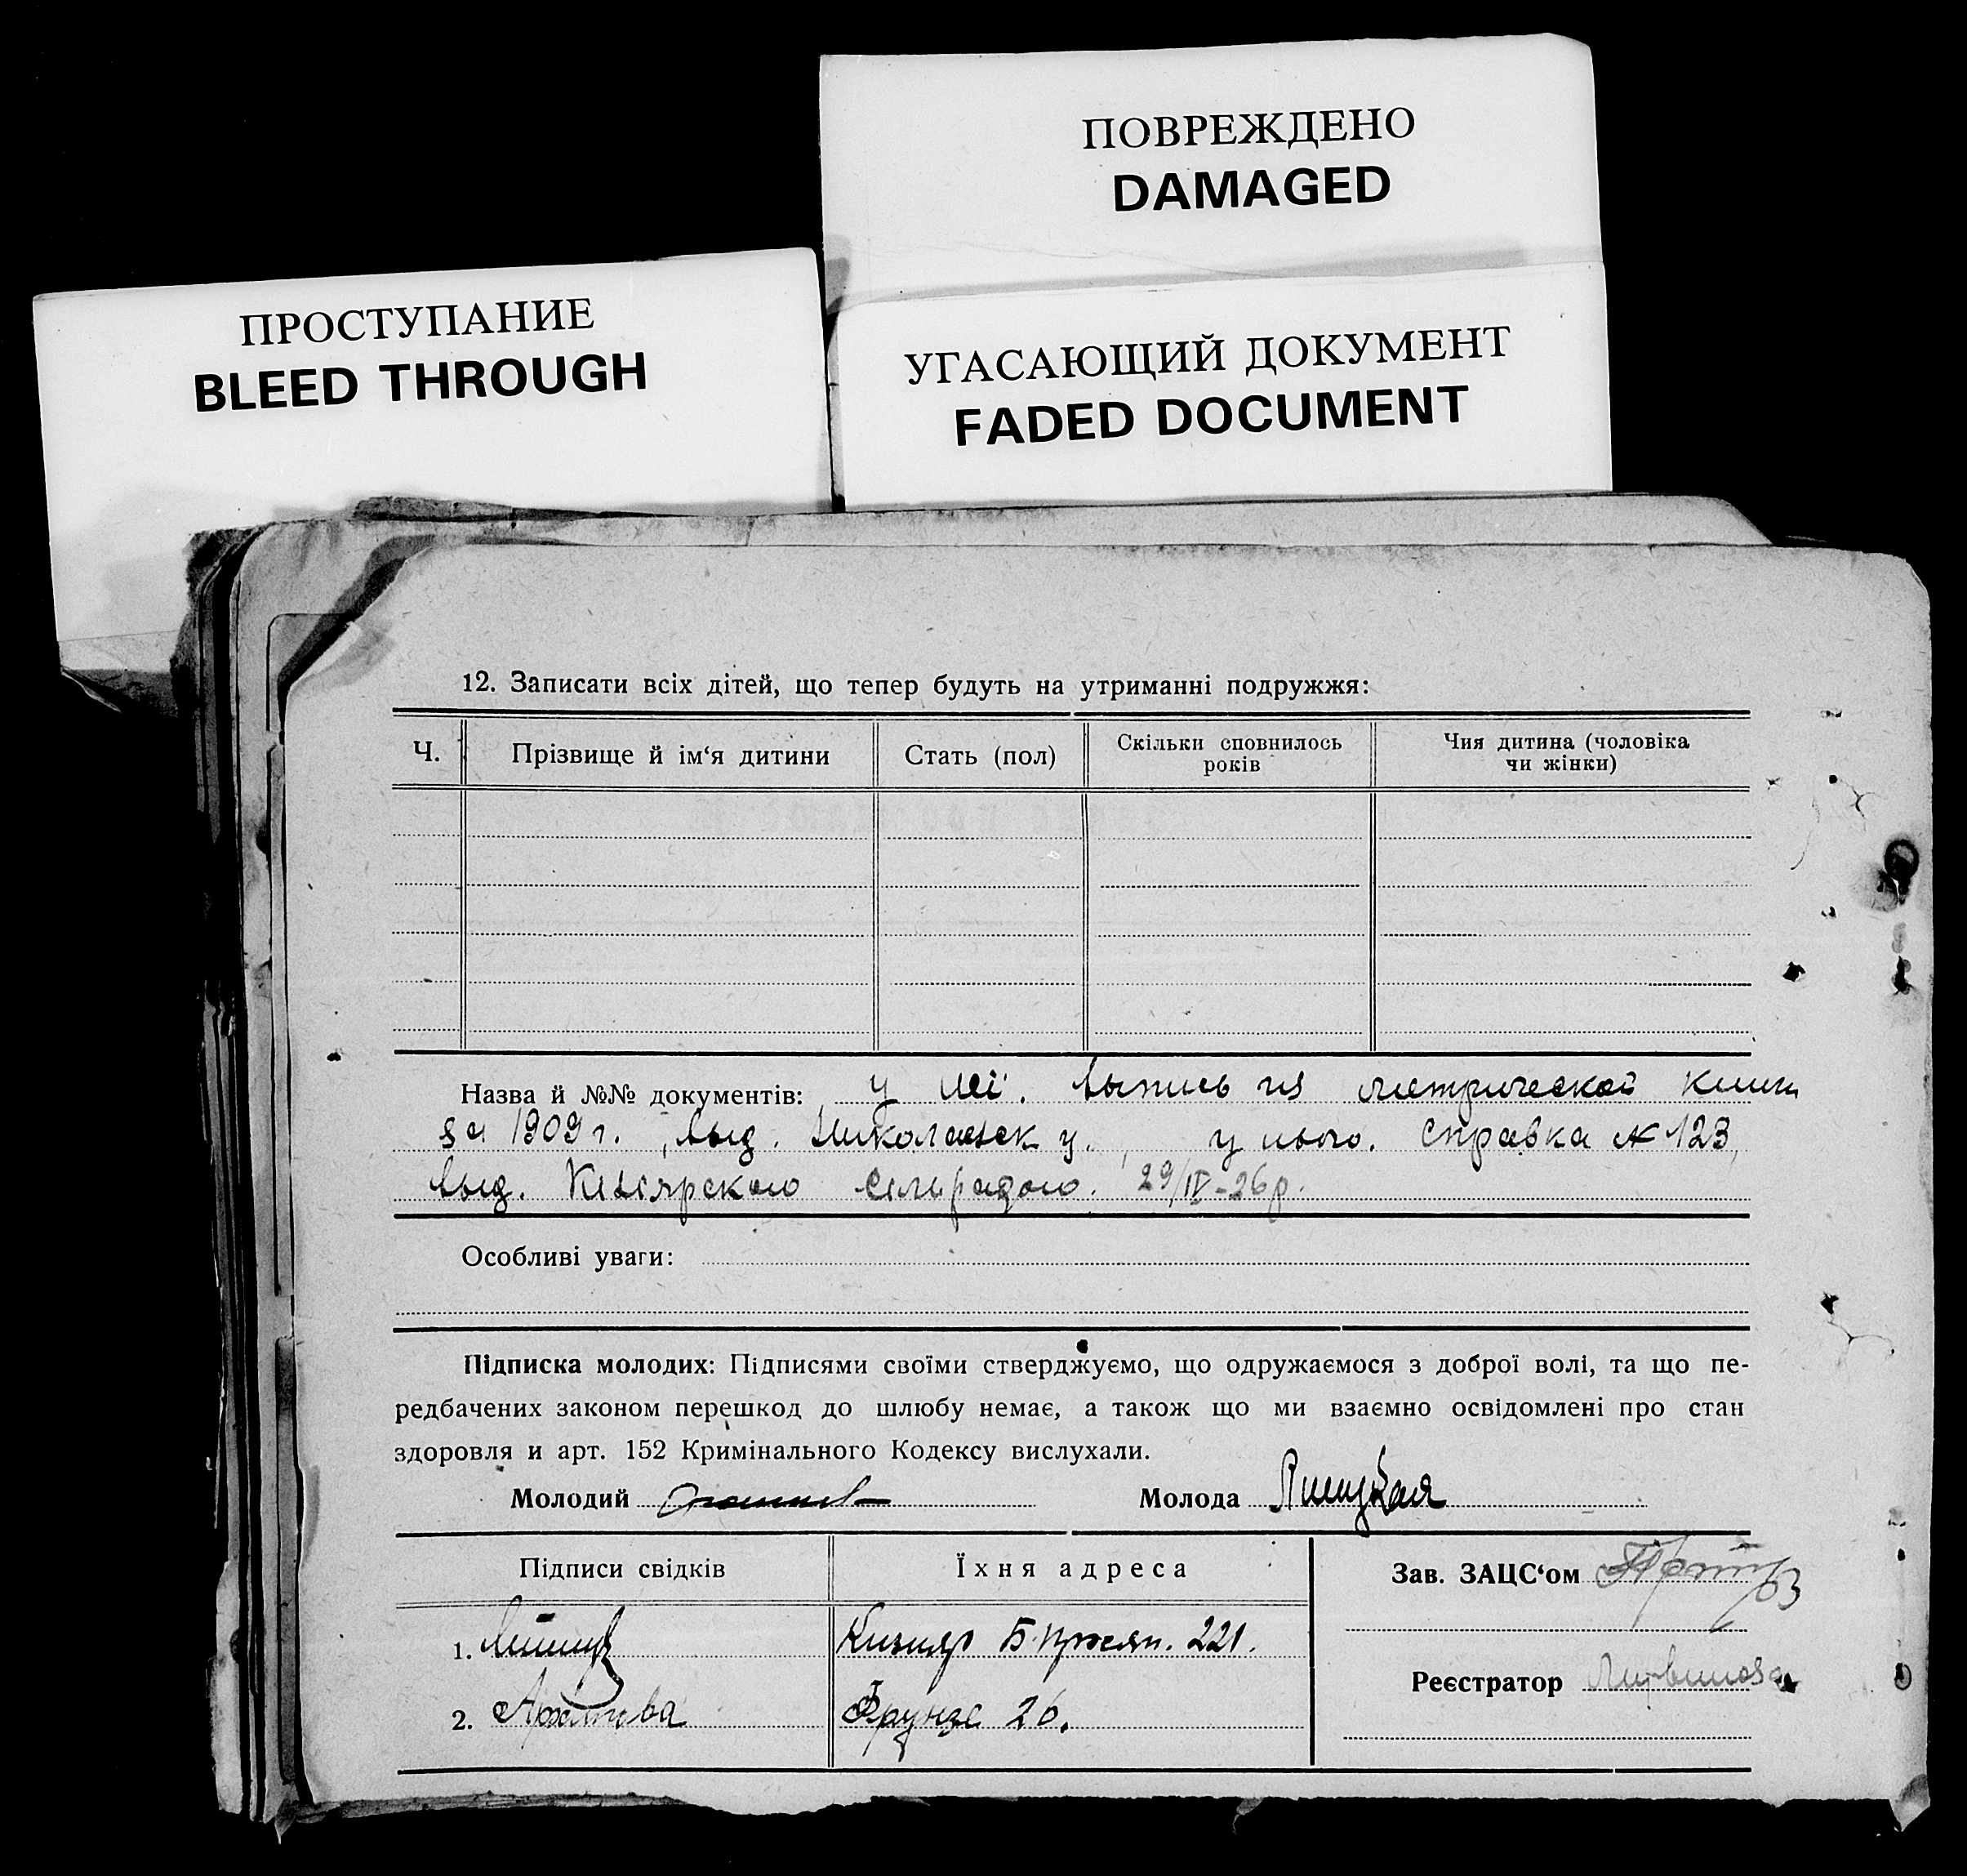 ПОВРЕЖДЕНО
DAMAGED
ПРОСТУПАНИЕ
BLEED THROUGH
УГАСАЮЩИЙ ДОКУМЕНТ
FADED DOCUMENT
12. Записати всіх дітей, що тепер будуть на утриманні подружжя:
Ч. Прізвище й ім‘я дитини Стать (пол) Скільки сповнилось років Чия дитина (чоловіка чи жінки)
Назва й №№ документів: у неї. выпись из метрической книги
за 1909 г., выд. у нього. справка № 123,
выд. сельрадою. 29/IV-26р.
Особливі уваги:
Підписка молодих: Підписями своїми стверджуємо, що одружаємося з доброї волі, та що пе-
редбачених законом перешкод до шлюбу немає, а також що ми взаємно освідомлені про стан
здоровля и арт. 152 Кримінального Кодексу вислухали.
Молодий Молода
Підписи свідків Їхня адреса Зав. ЗАЦС‘ом
1. Кизияр 221.
Реєстратор Литвинова
2. Фрунзе 26.